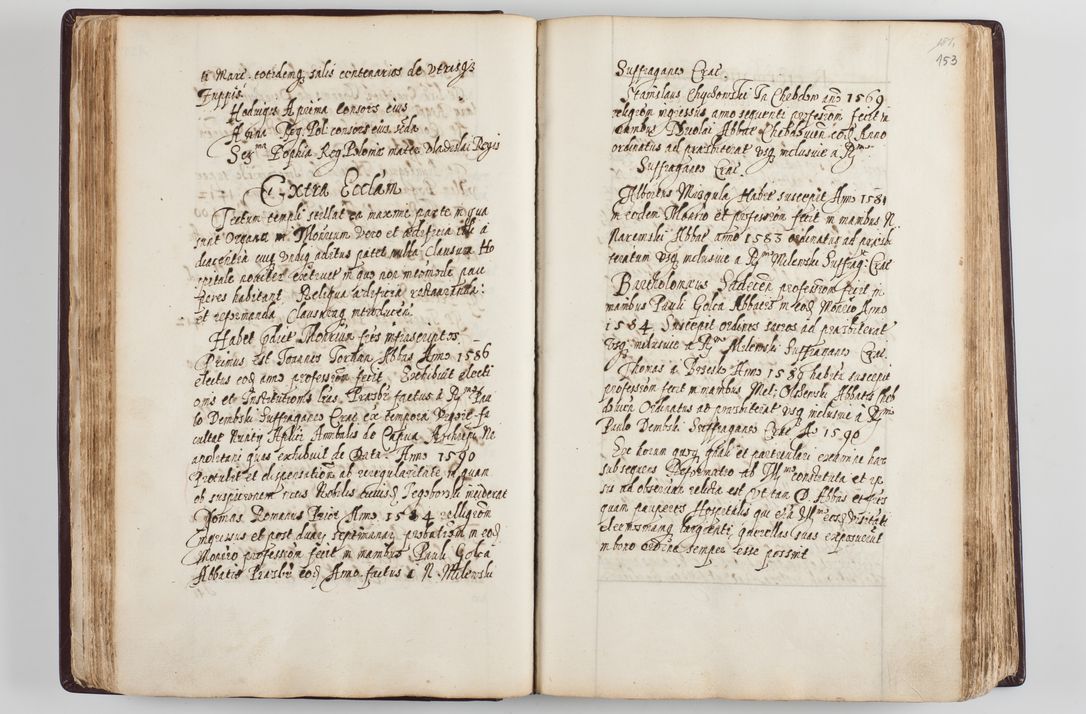 ti Marc. totidemq salis centenarios de vtrisq
Zuppis
Hadrigis A prima consors eius
Anna Reg Pol: consors eius scda
Ser.ma Sophia Reg Poloniæ mater Vladislai Regis
Extra Ecclam
Tectum templi stellat ea maxime parte in qua
sunt Organa in Monrium vero et ædificia illi a
diacentia cuiq vndiq aditus patet nulla Clausura Ho
spitale noviter extructum in quo non pau
peres habitant Reliqua ædificia restauranda
et reformanda Clausuraq introducen
Habet Monrium frēs infrascriptos
Primus est Joannes Abbas Anno 1586
electus eod anno professiōm fecit Exhibuit electi
onis et Institutionis lrās Præsbr factus a Rmo Pau
lo Dembski Suffraganeo Crac ex tempora vigore fa
cultat Nuntij Aplici Annibalis de Capua Archiepi Ne
apolitani quas exhibuit de Data Anno 1590
Protulit et dispensationem ab irregularitate in quam
ob suspicionem necis Nobilis inciderat
Thomas Romanus Prior Anno 1584 relligiōm
ingressus et post duas septimanas probatiōm in eod
Monrio professiōm fecit in manibus Pauli Golca
Abbatis Præsbr eod Anno factus a R. Milewski
453
Suffraganeo Crac.
Stanislaus Chyczowski In Chebdow anō 1569
religiōm ingressus anno sequenti professiōm fecit in
manibus Nicolai Abbat Chebdovien eod Anno
ordinatus ad præsbiterat vsq inclusive a Rmo
Suffraganeo Crac
Albertus Musgula Habit suscepit Anno 1584
in eodem Monrio et professiōm fecit in manibus N.
Naremski Abbat anno 1583 ordinatus ad præsbi
teratum vsq inclusive a Rmo Milewski Suffrag: Crac
Bartholomæus Sadecēn professiōm fecit in
manibus Pauli Golca Abbatis in eod Monrio Anno
1584 Suscepit ordines sacros ad præsbiterat
vsq inclusive a Rmo Milewski Suffraganeo Crac.
Thomas a Brzesko Anno 1589 habitū suscepit
professiōm fecit in manibus Mel: Olszewski Abbatis Cheb
dovien Ordinatus ad præsbiterat vsq inclusive à Rmo
Paulo Dembski Suffraganeo Crac Aō 1590
Eve horum quoq gnāli et particulari examine hac
subsequens Reformatio ab Illmo constituta et ip
sis ad observan relicta est vt tam D Abbas et frēs
quam pauperes Hospitalis qui etiā Illmo eos visitāti
eleemosinamq largienti querellas suas exposuerūt
in bono ordine semper esse possint